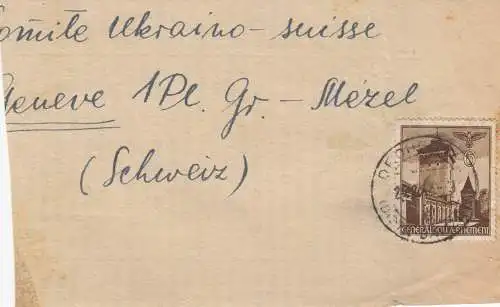 omite Ukraino-suisse
Geneve 1Pl. Gr. - Mézel
(Schweiz)
GENERALGOUVERNEMENT